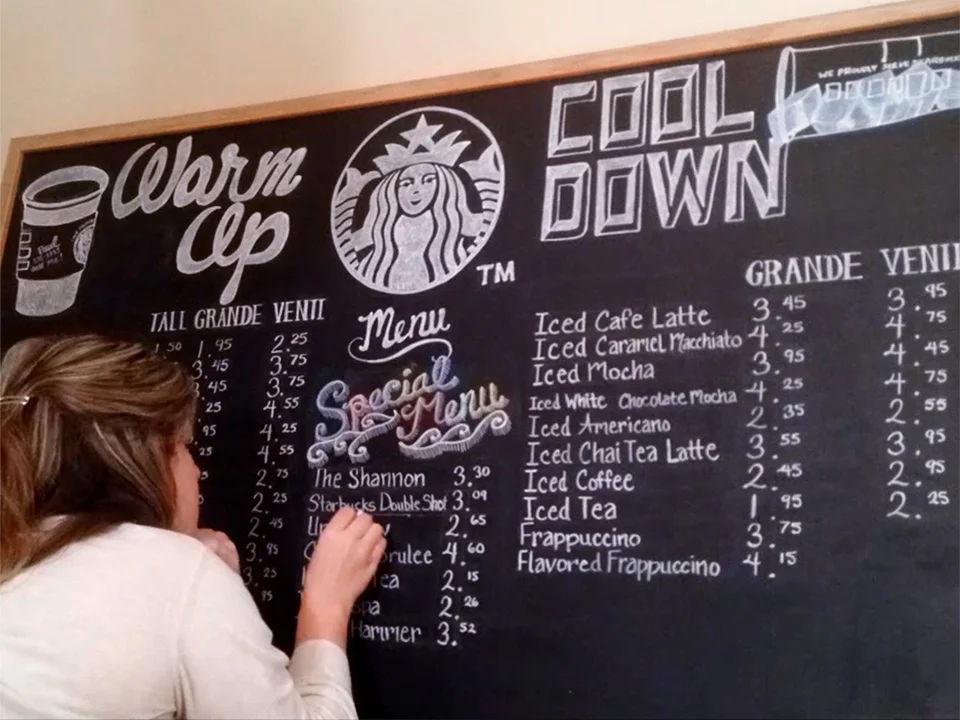 WE PROUDLY SERVE STARBUCKS
Warm
Up
COOL
DOWN
TM
TALL GRANDE VENTI
1.50 1.95 2.25
3.45 3.75
.45 3.75
.25 4.55
.95 4.25
.25 4.55
2.75
2.25
2.45
3.95
3.25
.95
Menu
Special
Menu
The Shannon 3.30
Starbucks Double Shot 3.09
2.65
rulee 4.60
ea 2.15
pa 2.26
Hammer 3.52
GRANDE VENTI
Iced Cafe Latte 3.45 3.95
Iced Caramel Macchiato 4.25 4.75
Iced Mocha 3.95 4.45
Iced White Chocolate Mocha 4.25 4.75
Iced Americano 2.35 2.55
Iced Chai Tea Latte 3.55 3.95
Iced Coffee 2.45 2.95
Iced Tea 1.95 2.25
Frappuccino 3.75
Flavored Frappuccino 4.15